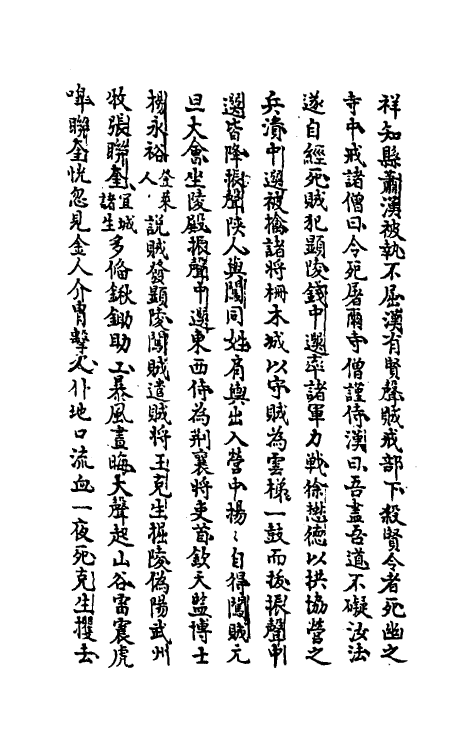 祥知縣蕭漢被執不屈漢有賢聲賊戒部下殺賢令者死幽之
寺中戒諸僧曰令死屠爾寺僧謹侍漢曰吾盡吾道不礙汝法
遂自經死賊犯顯陵錢中選率諸軍力戰徐懋德以拱協營之
兵潰中選被擒諸將柵木城以守賊為雲梯一鼓而拔振聲中
選皆降振聲陝人與闖同姓肩輿出入營中揚〻自得闖賊元
旦大會坐陵殿振聲中選東西侍為荆襄將吏首欽天監博士
楊永裕登萊人說賊發顯陵闖賊遣賊將王克生掘陵偽陽武州
牧張聯奎宜城諸生多備鍬鋤助工暴風晝晦大聲起山谷雷震虎
嘷聯奎恍忽見金人介冑擊之仆地口流血一夜死克生攫去